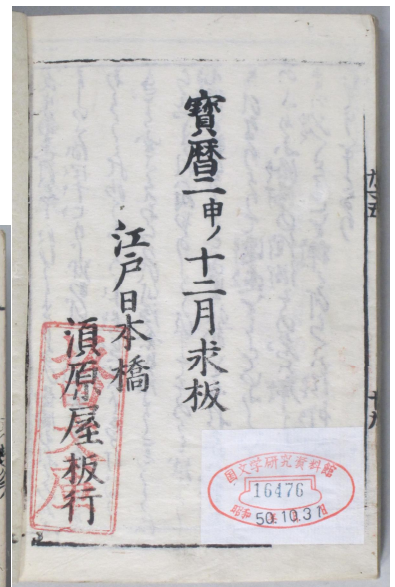 寳暦二申ノ十二月求板
江戸日本橋
須原屋板行
國文学研究資料館
16476
昭和
50.10.31